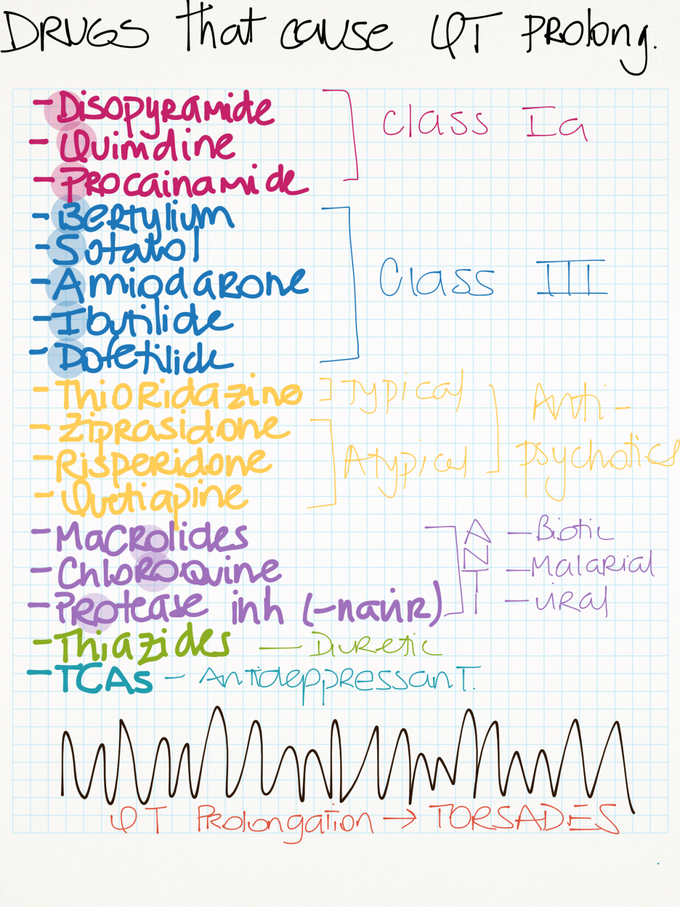 DRUGS that cause QT Prolong.
- Disopyramide
- Quimdine
- Procainamide
Class Ia
- Bertylium
- Sotalol
- Amiodarone
- Ibutilide
- Dofetilide
Class III
- Thioridazine ] Typical
- Ziprasidone
- Risperidone
- Quetiapine
Atypical
Anti-
psychotics
- Macrolides
- Chloroquine
- Protease inh (-navir)
A - Biotic
N - Malarial
T - viral
- Thiazides - Diuretic
- TCAs - Antideppressant.
QT Prolongation → TORSADES